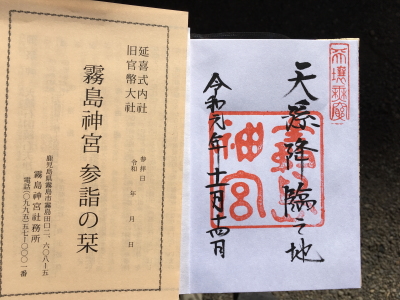 天壌無窮
天孫降臨之地
霧島神宮
令和元年十一月十四日
延喜式内社
旧官幣大社
霧島神宮 参詣の栞
参拝日
令和 年 月 日
鹿児島県霧島市霧島田口二、六〇八ノ五
霧島神宮社務所
電話(〇九九五)五七-〇〇〇一番